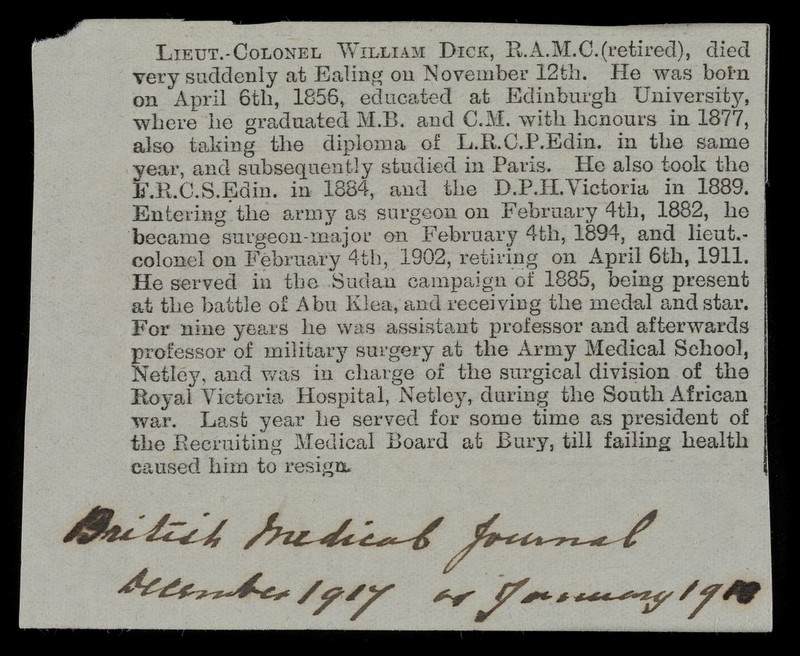 LIEUT.-COLONEL WILLIAM DICK, R.A.M.C.(retired), died
very suddenly at Ealing on November 12th. He was born
on April 6th, 1856, educated at Edinburgh University,
where he graduated M.B. and C.M. with honours in 1877,
also taking the diploma of L.R.C.P.Edin. in the same
year, and subsequently studied in Paris. He also took the
F.R.C.S.Edin. in 1884, and the D.P.H.Victoria in 1889.
Entering the army as surgeon on February 4th, 1882, he
became surgeon-major on February 4th, 1894, and lieut.-
colonel on February 4th, 1902, retiring on April 6th, 1911.
He served in the Sudan campaign of 1885, being present
at the battle of Abu Klea, and receiving the medal and star.
For nine years he was assistant professor and afterwards
professor of military surgery at the Army Medical School,
Netley, and was in charge of the surgical division of the
Royal Victoria Hospital, Netley, during the South African
war. Last year he served for some time as president of
the Recruiting Medical Board at Bury, till failing health
caused him to resign.
British Medical Journal
December 1917 or January 1918